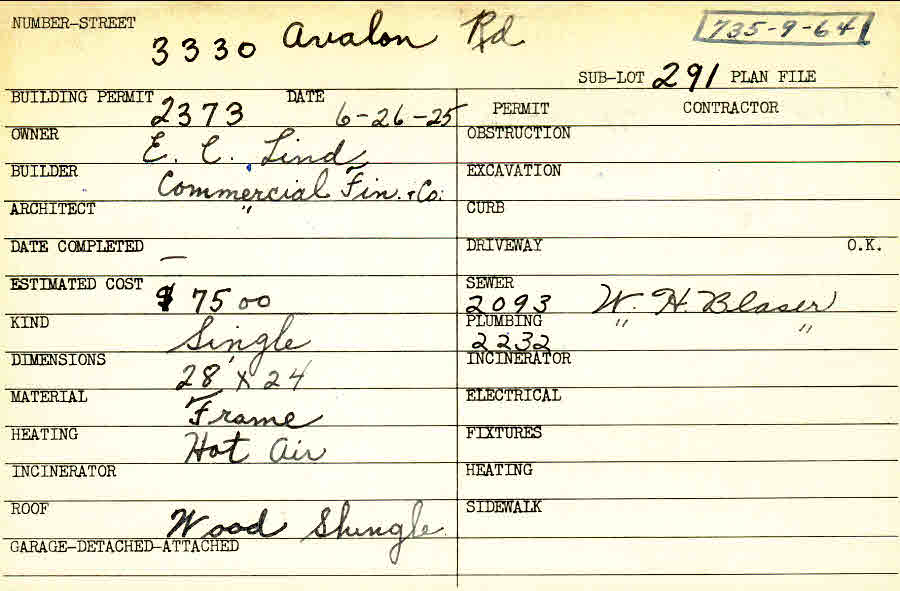 NUMBER-STREET 3330 Avalon Rd 735-9-64
SUB-LOT 291 PLAN FILE
BUILDING PERMIT 2373 DATE 6-26-25 PERMIT CONTRACTOR
OWNER E. C. Lind OBSTRUCTION
BUILDER Commercial Fin. + Co. EXCAVATION
ARCHITECT " CURB
DATE COMPLETED — DRIVEWAY O.K.
ESTIMATED COST $ 7500 SEWER 2093 W. H. Blaser
KIND Single PLUMBING 2232 " "
DIMENSIONS 28' x 24 INCINERATOR
MATERIAL Frame ELECTRICAL
HEATING Hot Air FIXTURES
INCINERATOR HEATING
ROOF Wood Shingle SIDEWALK
GARAGE-DETACHED-ATTACHED